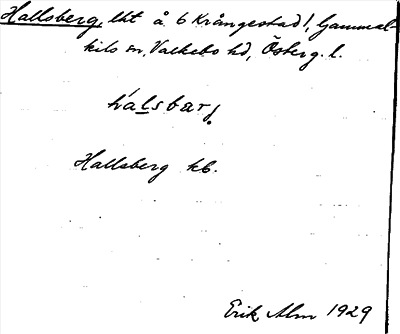 Hallsberg, lht å 6 Krångestad 1, Gammal-
kils sn, Valkebo hd, Österg. l.
hálsbarj.
Hallsberg kb.
Erik Alm 1929